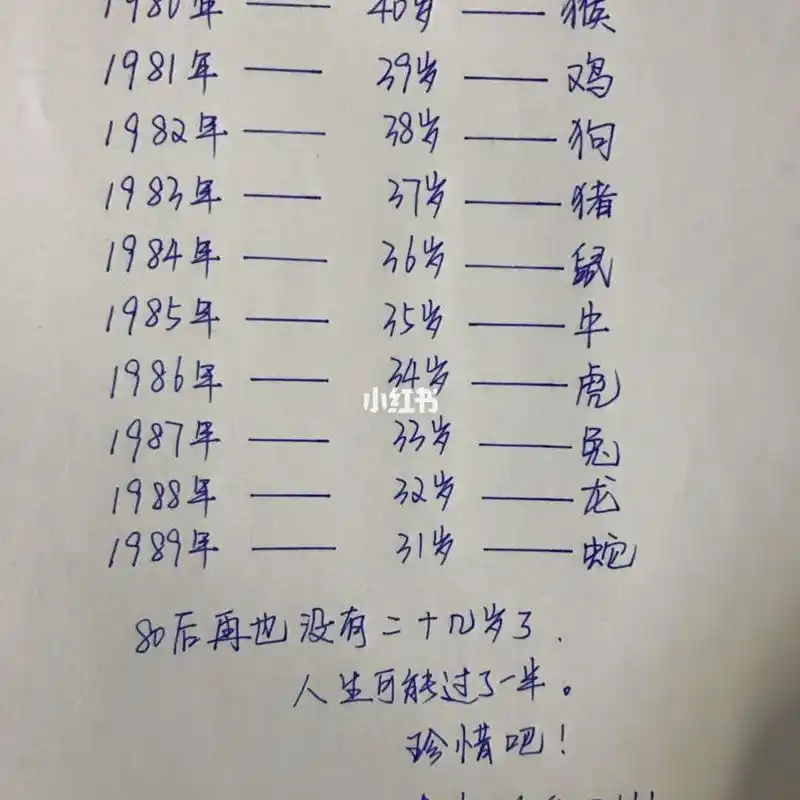 1980年 —— 40岁 —— 猴
1981年 —— 39岁 —— 鸡
1982年 —— 38岁 —— 狗
1983年 —— 37岁 —— 猪
1984年 —— 36岁 —— 鼠
1985年 —— 35岁 —— 牛
1986年 —— 34岁 —— 虎
小红书
1987年 —— 33岁 —— 兔
1988年 —— 32岁 —— 龙
1989年 —— 31岁 —— 蛇
80后再也没有二十几岁了.
人生可能过了一半。
珍惜吧!